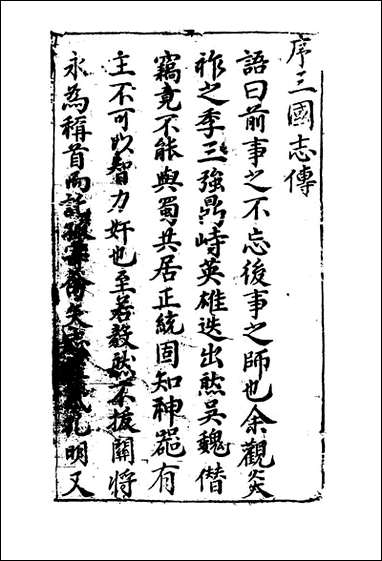 序三國志傳
語曰前事之不忘後事之師也余觀炎
祚之季三強鼎峙英雄迭出然吳魏僭
竊竟不能與蜀共居正統固知神器有
主不可以智力奸也至若毅然不拔關將
永為稱首而託孤孔明又